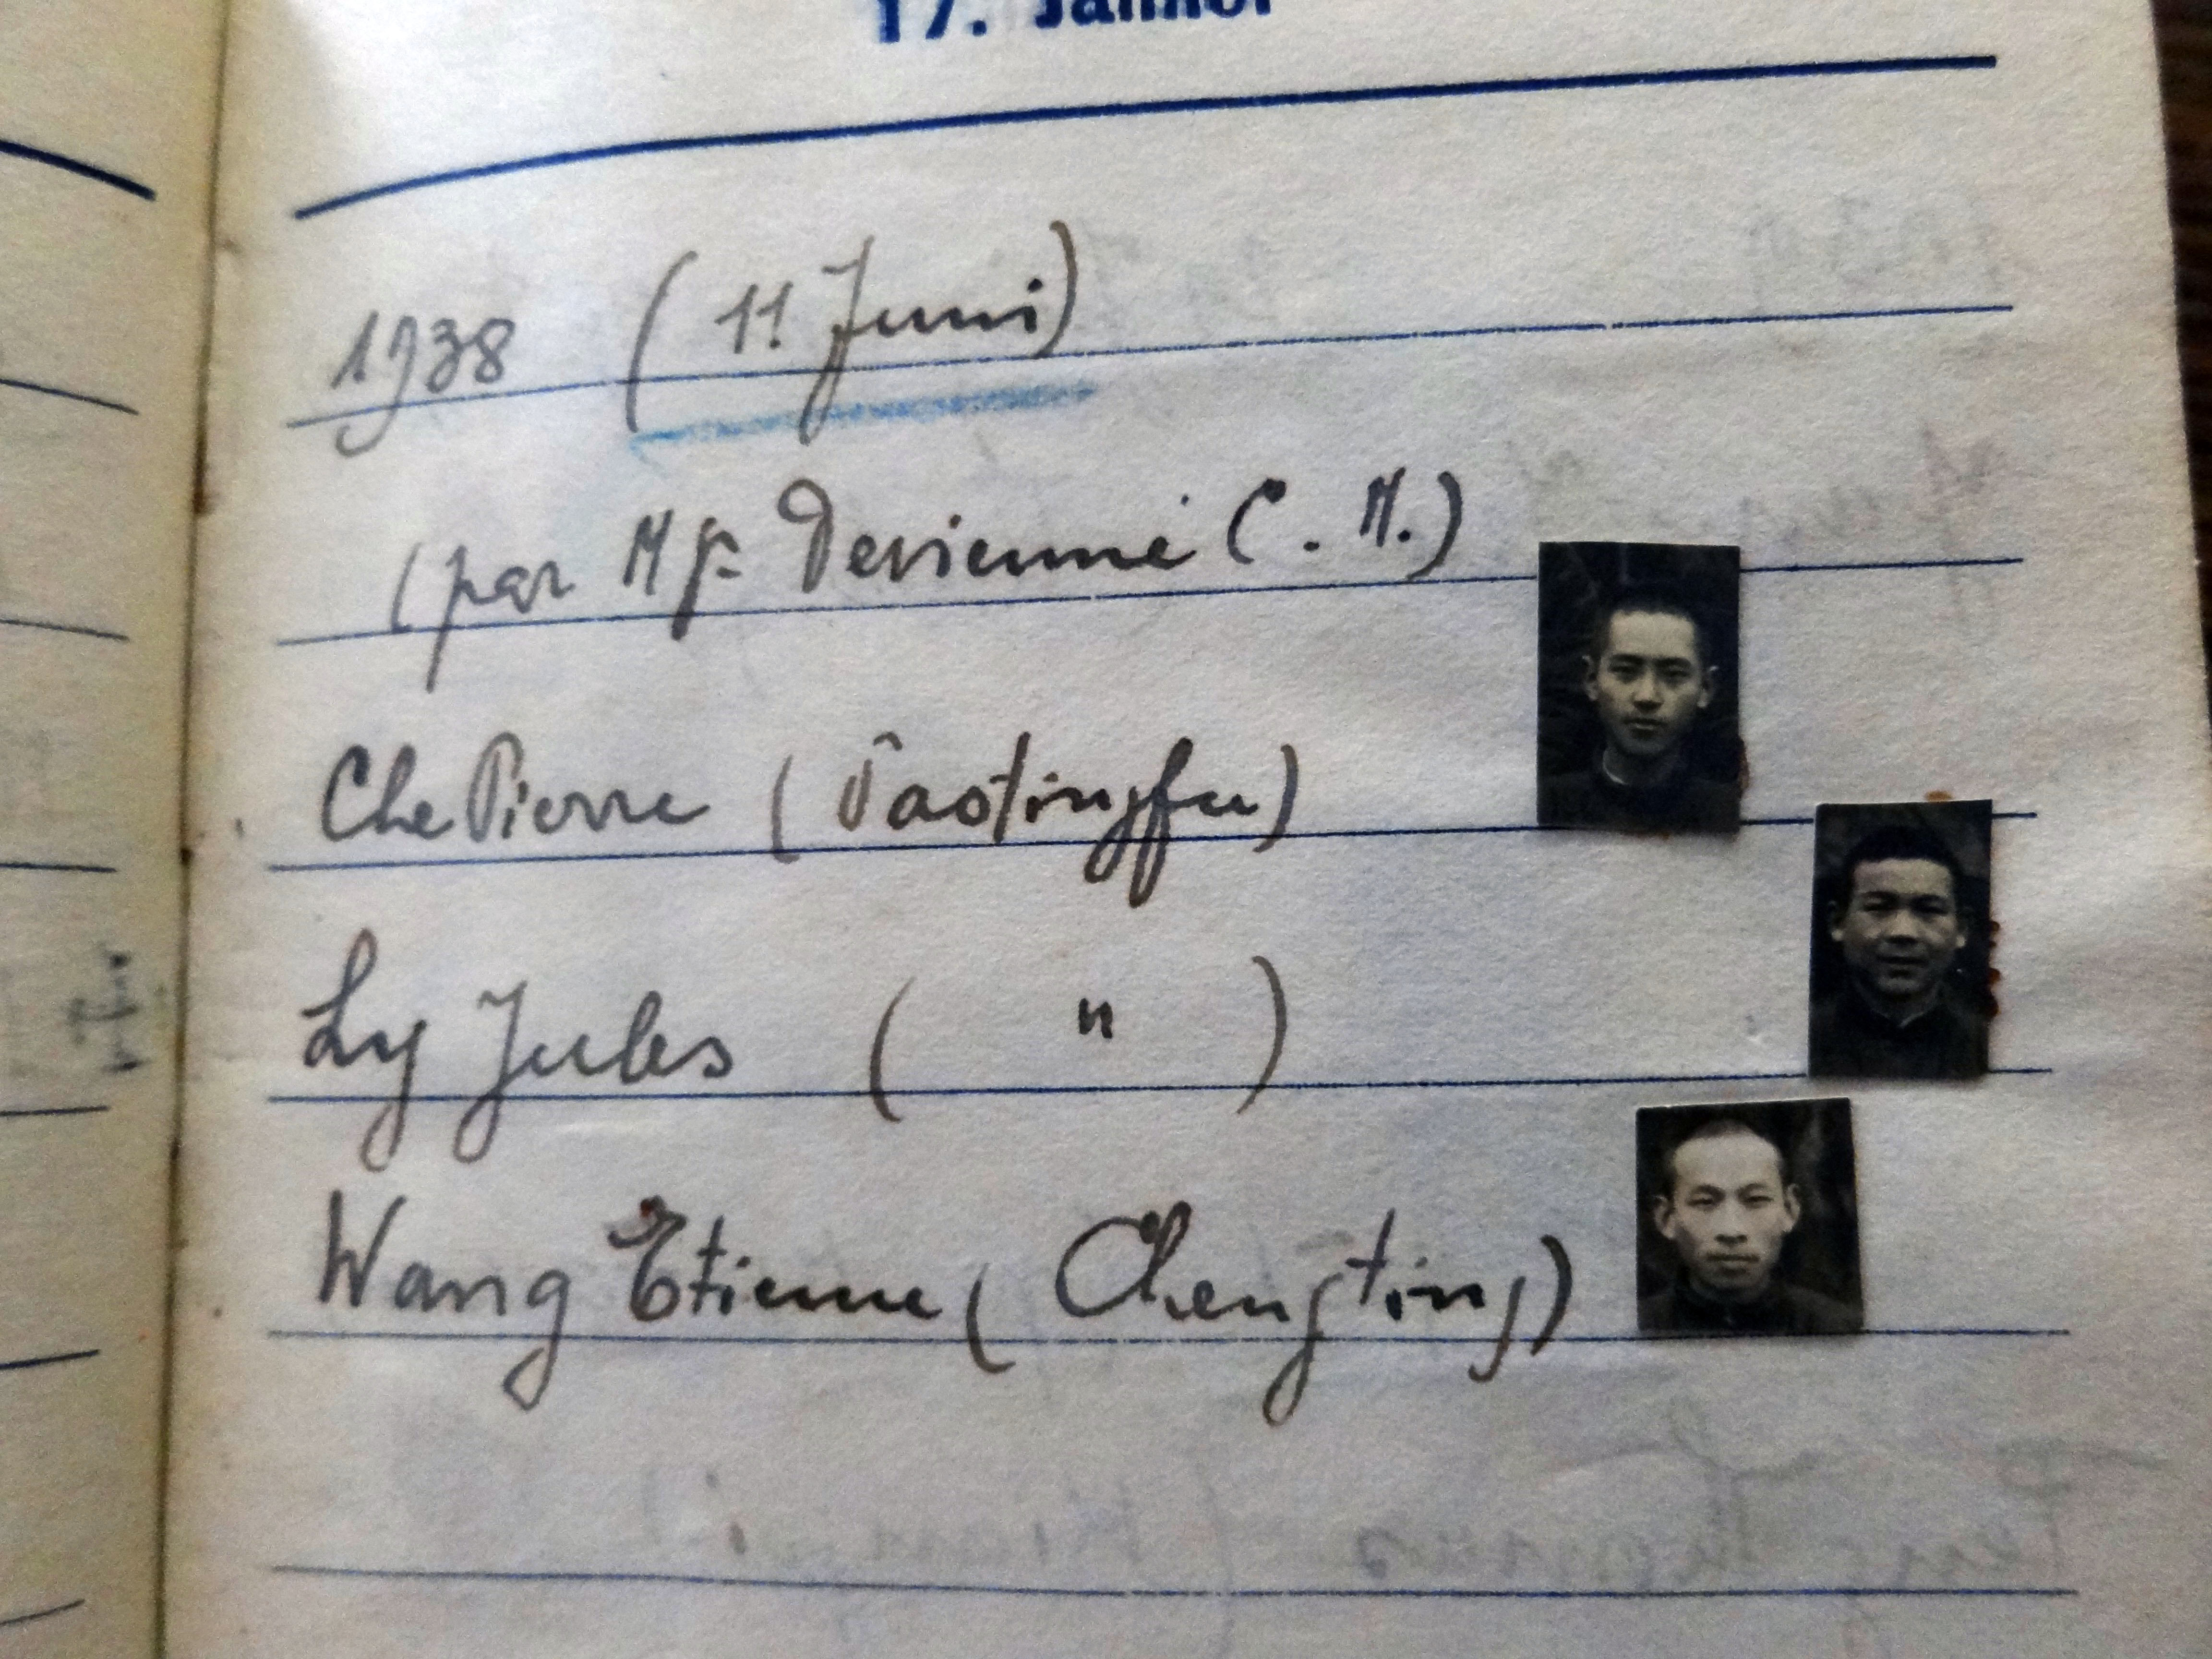 17. Jänner
1938 (11. Juni)
(par Mgr. Devienne C. M.)
Che Pierre (Paotingfu)
Ly Jules ( " )
Wang Etienne (Chengting)